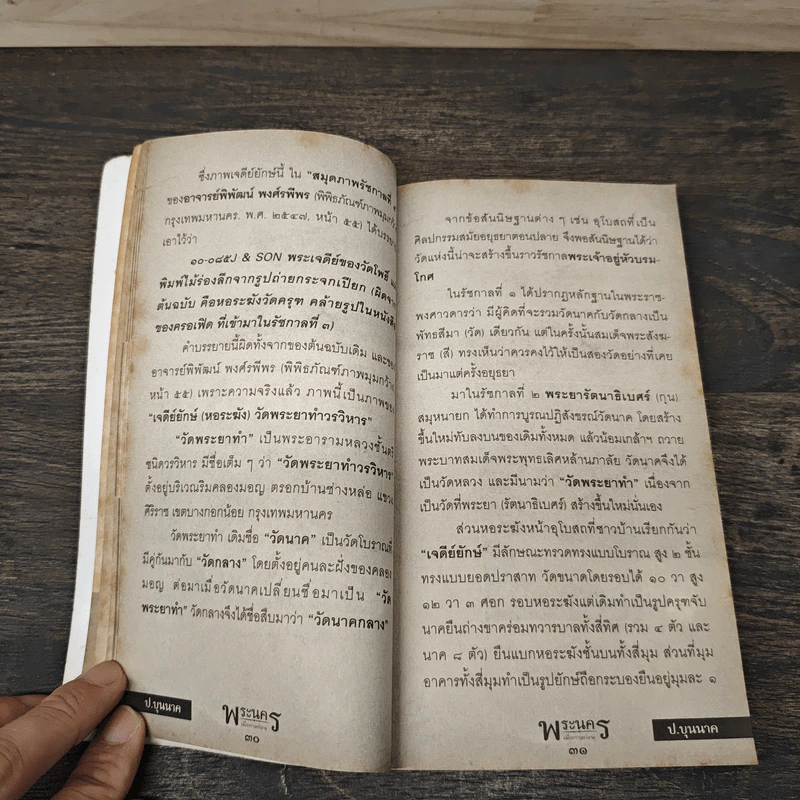 ซึ่งภาพเจดีย์ยักษ์นี้ ใน "สมุดภาพรัชกาลที่
ของอาจารย์พิพัฒน์ พงศ์รพีพร (พิพิธภัณฑ์ภาพมุมกว้าง
กรุงเทพมหานคร. พ.ศ. ๒๕๔๗, หน้า ๕๕) ได้
เอาไว้ว่า
๑๐-๐๘๕J & SON พระเจดีย์ของวัดโพธิ์
พิมพ์ไม้ร่องลึกจากรูปถ่ายกระจกเปียก (ผิดจาก
ต้นฉบับ คือหอระฆังวัดครุฑ คล้ายรูปในหนังสือ
ของครอเฟิด ที่เข้ามาในรัชกาลที่ ๓)
คำบรรยายนี้ผิดทั้งจากของต้นฉบับเดิม และของ
อาจารย์พิพัฒน์ พงศ์รพีพร (พิพิธภัณฑ์ภาพมุมกว้าง
หน้า ๕๕) เพราะความจริงแล้ว ภาพนี้เป็นภาพของ
"เจดีย์ยักษ์ (หอระฆัง) วัดพระยาทำวรวิหาร"
"วัดพระยาทำ" เป็นพระอารามหลวงชั้นตรี
ชนิดวรวิหาร มีชื่อเต็ม ๆ ว่า "วัดพระยาทำวรวิหาร"
ตั้งอยู่บริเวณริมคลองมอญ ตรอกบ้านช่างหล่อ แขวง
ศิริราช เขตบางกอกน้อย กรุงเทพมหานคร
วัดพระยาทำ เดิมชื่อ "วัดนาค" เป็นวัดโบราณที่
มีคู่กันมากับ "วัดกลาง" โดยตั้งอยู่คนละฝั่งของคลอง
มอญ ต่อมาเมื่อวัดนาคเปลี่ยนชื่อมาเป็น "วัด
พระยาทำ" วัดกลางจึงได้ชื่อสืบมาว่า "วัดนาคกลาง"
ป.บุนนาค
พระนคร
๓๐
จากข้อสันนิษฐานต่าง ๆ เช่น อุโบสถที่เป็น
ศิลปกรรมสมัยอยุธยาตอนปลาย จึงพอสันนิษฐานได้ว่า
วัดแห่งนี้น่าจะสร้างขึ้นราวรัชกาลพระเจ้าอยู่หัวบรม-
โกศ
ในรัชกาลที่ ๑ ได้ปรากฏหลักฐานในพระราช-
พงศาวดารว่า มีผู้คิดที่จะรวมวัดนาคกับวัดกลางเป็น
พัทธสีมา (วัด) เดียวกัน แต่ในครั้งนั้นสมเด็จพระสังฆ-
ราช (สี) ทรงเห็นว่าควรคงไว้ให้เป็นสองวัดอย่างที่เคย
เป็นมาแต่ครั้งอยุธยา
มาในรัชกาลที่ ๒ พระยารัตนาธิเบศร์ (กุน)
สมุหนายก ได้ทำการบูรณปฏิสังขรณ์วัดนาค โดยสร้าง
ขึ้นใหม่ทับลงบนของเดิมทั้งหมด แล้วน้อมเกล้าฯ ถวาย
พระบาทสมเด็จพระพุทธเลิศหล้านภาลัย วัดนาคจึงได้
เป็นวัดหลวง และมีนามว่า "วัดพระยาทำ" เนื่องจาก
เป็นวัดที่พระยา (รัตนาธิเบศร์) สร้างขึ้นใหม่นั่นเอง
ส่วนหอระฆังหน้าอุโบสถที่ชาวบ้านเรียกกันว่า
"เจดีย์ยักษ์" มีลักษณะทรวดทรงแบบโบราณ สูง ๒ ชั้น
ทรงแบบยอดปราสาท วัดขนาดโดยรอบได้ ๑๐ วา สูง
๑๒ วา ๓ ศอก รอบหอระฆังแต่เดิมทำเป็นรูปครุฑจับ
นาคยืนถ่างขาคร่อมทวารบาลทั้งสี่ทิศ (รวม ๔ ตัว และ
นาค ๘ ตัว) ยืนแบกหอระฆังชั้นบนทั้งสี่มุม ส่วนที่มุม
อาคารทั้งสี่มุมทำเป็นรูปยักษ์ถือกระบองยืนอยู่มุมละ ๑
พระนคร
๓๑
ป.บุนนาค